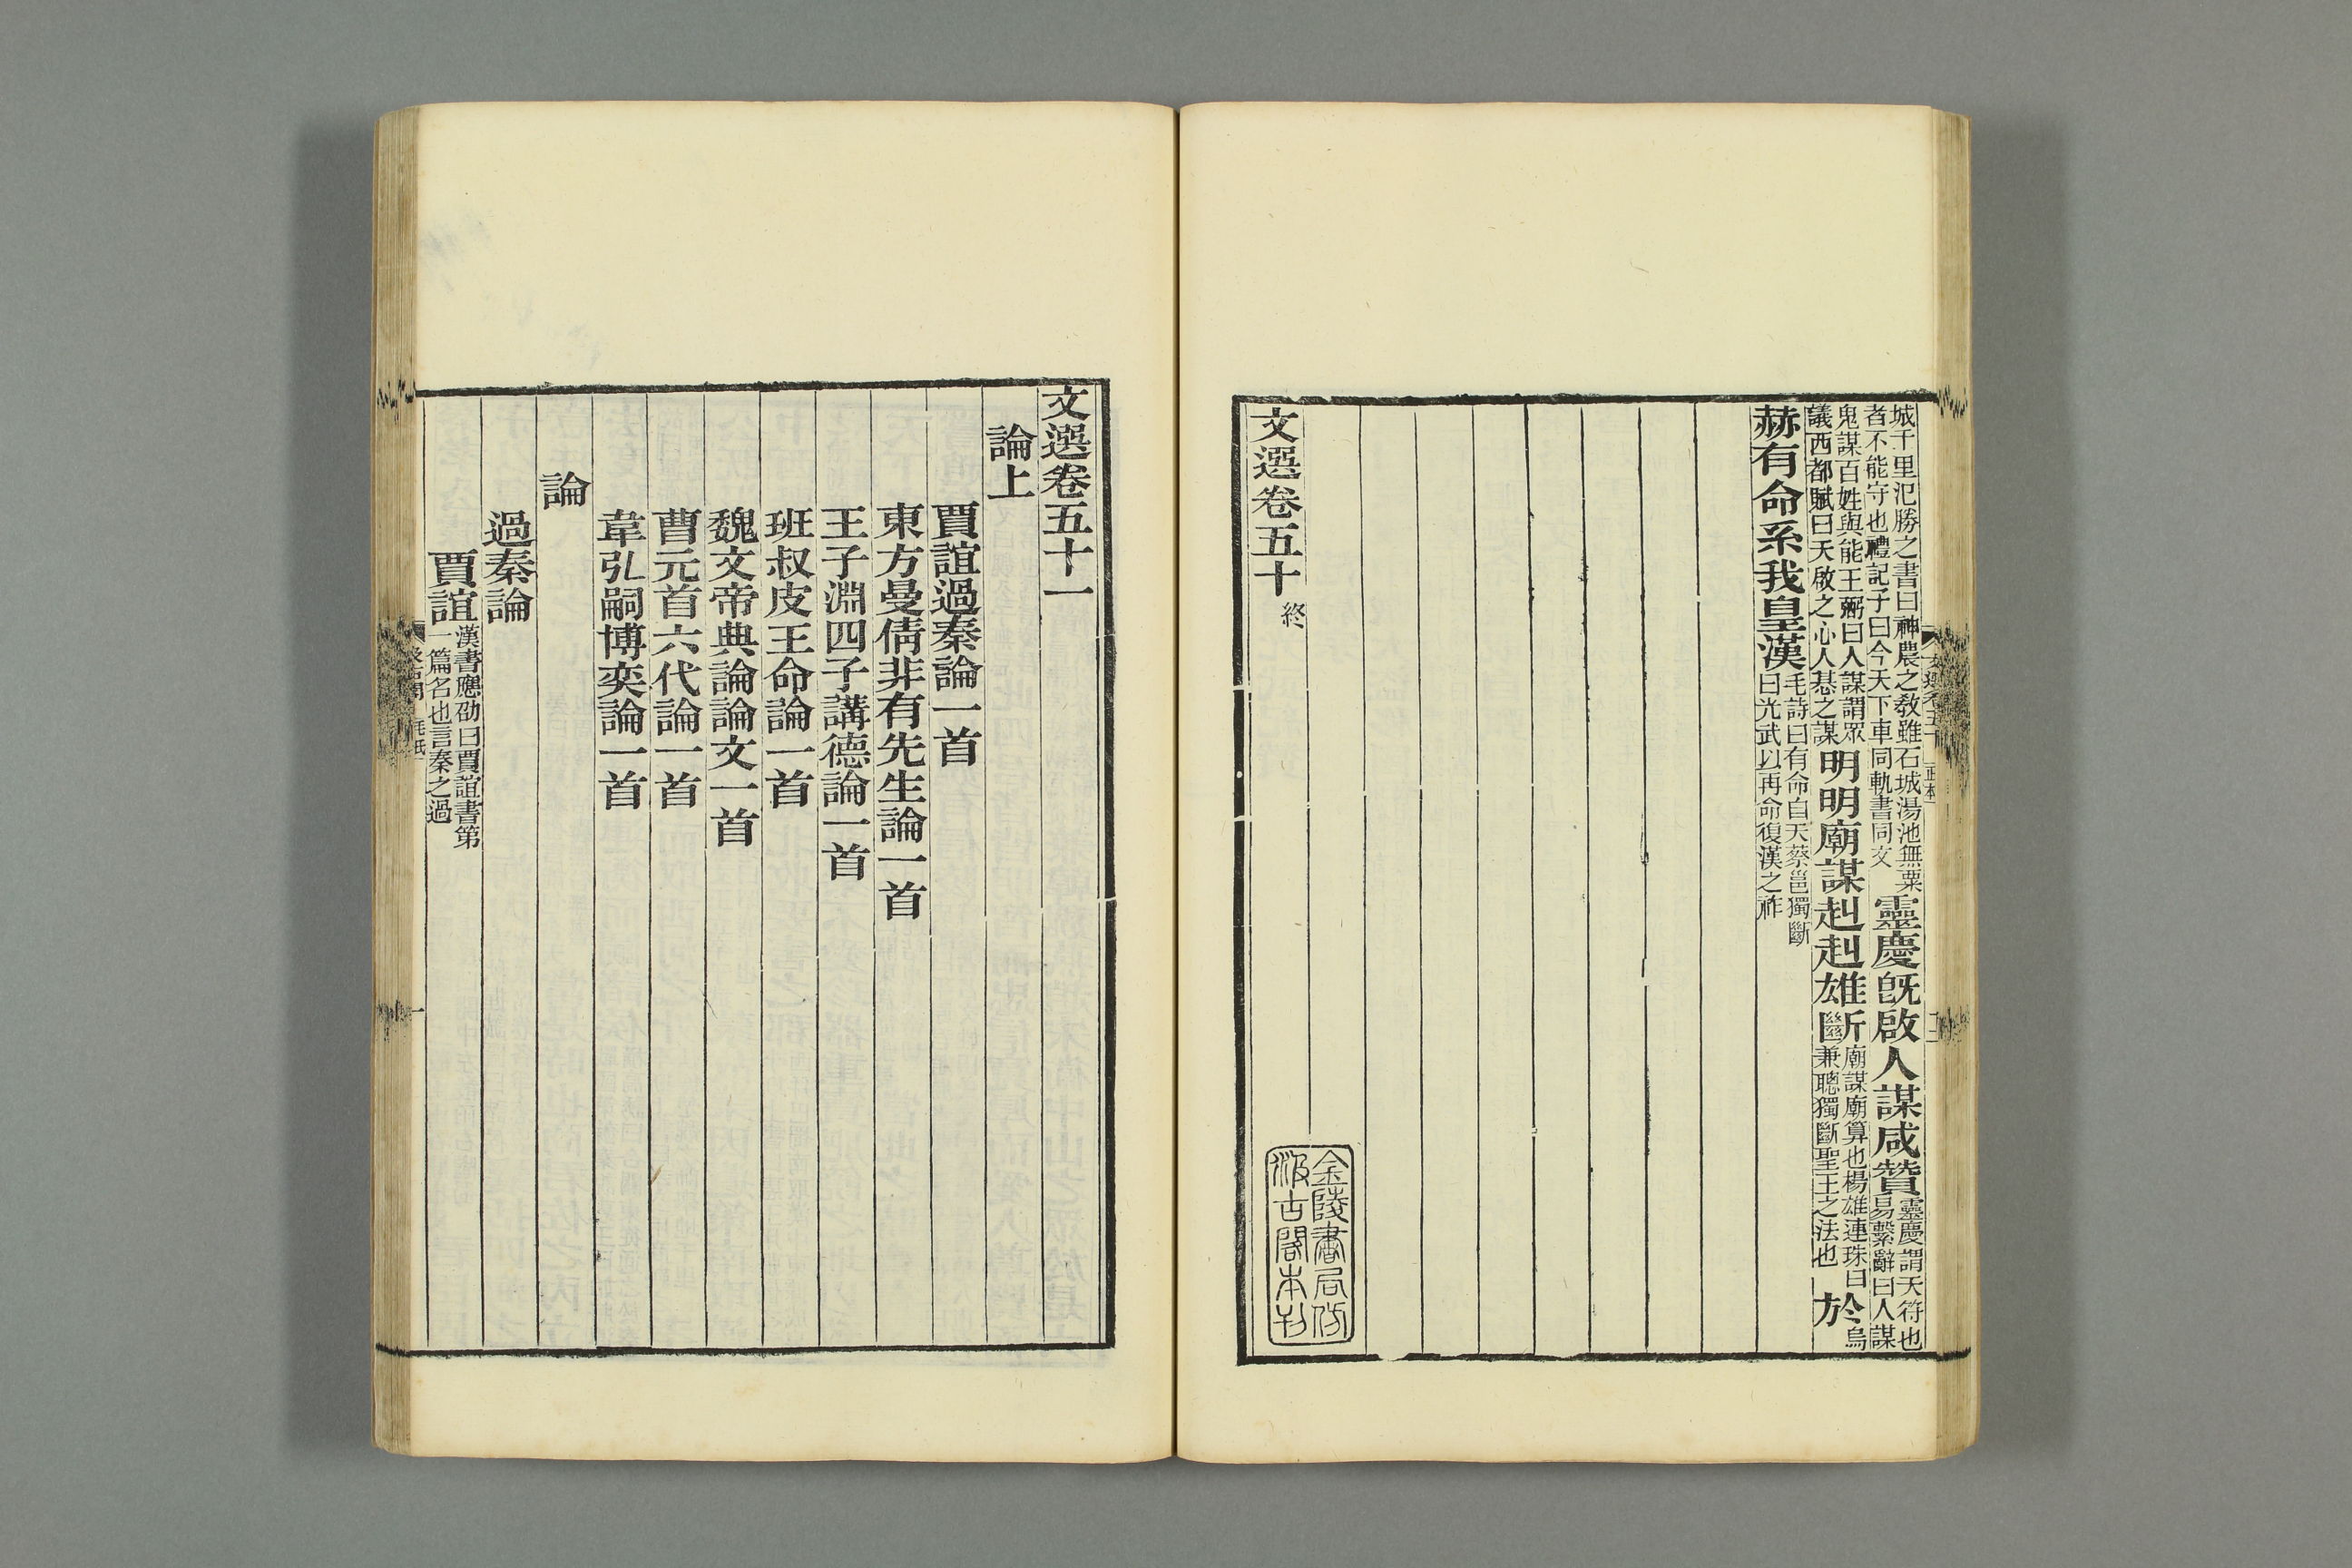 城千里氾勝之書曰神農之敎雖石城湯池無粟
者不能守也禮記子曰今天下車同軌書同文
靈慶旣啟人謀咸贊
靈慶謂天符也
易繫辭曰人謀
鬼謀百姓與能王弼曰人謀謂眾
議西都賦曰天啟之心人惎之謀
明明廟謀赳赳雄斷
廟謀廟算也楊雄連珠曰
兼聰獨斷聖王之法也
於
烏
赫有命系我皇漢
毛詩曰有命自天蔡邕獨斷
曰光武以再命復漢之祚
文選卷五十
終
金陵書局仿
汲古閣本刊
文選卷五十一
論上
賈誼過秦論一首
東方曼倩非有先生論一首
王子淵四子講德論一首
班叔皮王命論一首
魏文帝典論論文一首
曹元首六代論一首
韋弘嗣博奕論一首
論
過秦論
賈誼
漢書應劭曰賈誼書第
一篇名也言秦之過